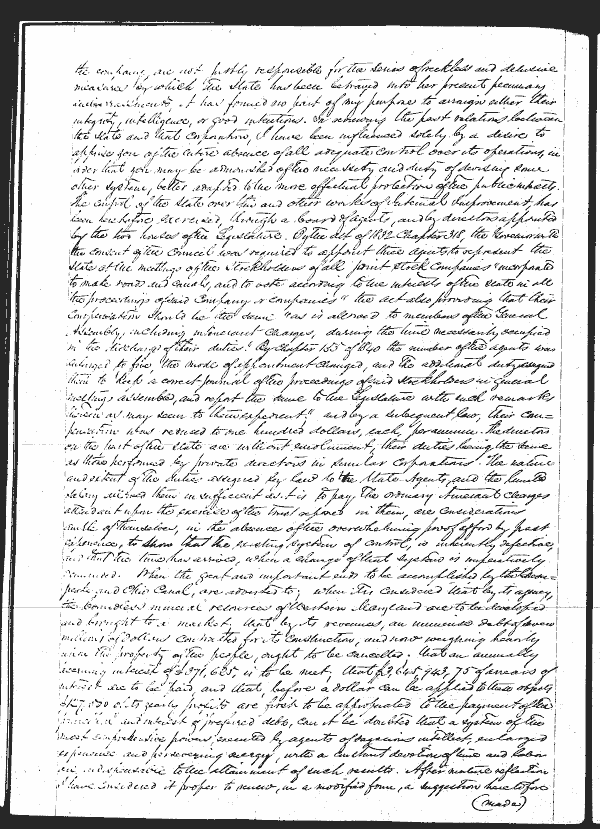 the company, are not justly responsible for the series of reckless and delusive
measures by which the State has been betrayed into her present pecuniary
embarrassments. It has formed no part of my purpose to arraign either their
integrity, intelligence, or good intentions. In reviewing the past relations between
the State and that Corporation, I have been influenced solely by a desire to
apprise you of the entire absence of all adequate control over its operations, in
order that you may be admonished of the necessity and duty of devising some
other system, better adapted to the more effectual protection of the public interests.
The control of the State over this and other works of Internal Improvement, has
been heretofore exercised, through a board of agents, and by directors appointed
by the two houses of the Legislature. By the act of 1832 Chapter 318, the Governor with
the consent of the Council was required to appoint three agents to represent the
State at the meetings of the Stockholders of all joint stock companies "incorporated
to make roads and canals, and to vote according to the interests of the State in all
the proceedings of said Company or companies" the act also providing that their
compensation should be the same "as is allowed to members of the General
Assembly, including itinerant charges, during the time necessarily occupied
in the discharge of their duties." By Chapter 155 of 1840 the number of the agents was
enlarged to five, the mode of appointment changed, and the additional duty assigned
them to "keep a correct journal of the proceedings of said Stockholders in general
meetings assembled, and report the same to the Legislature with such remarks
thereon as may seem to them expedient," and by a subsequent law, their com-
pensation was reduced to one hundred dollars, each, per annum. The directors
on the part of the State are without emolument, their duties being the same
as those performed by private directors in similar Corporations. The nature
and extent of the duties assigned by law to the State Agents, and the limited
salary allowed them insufficient as it is to pay the ordinary itinerant charges
attendant upon the exercise of the trust reposed in them, are considerations
ample of themselves, in the absence of the overwhelming proof afforded by past
experience, to show that the existing system of control, is inherently defective,
and that the time has arrived, when a change of that system is imperatively
demanded. When the great and important ends to be accomplished by the Chesa-
peake and Ohio Canal, are adverted to; when it is considered that by its agency,
the boundless mineral resources of Western Maryland are to be developed
and brought to a market, that by its revenues, an immense debt of seven
millions of dollars contracted for its construction, and now weighing heavily
upon the property of the people, ought to be cancelled. that an annually
accruing interest of $371,625, is to be met, that $3,645,943,75 of arrears of
interest are to be paid, and that, before a dollar can be applied to these objects
$127,570 of its yearly profits are first to be appropriated to the payment of the
principal and interest of preferred debts, can it be doubted that a system of the
most comprehensive powers, executed by agents of sagacious intellect, enlarged
experience and persevering energy, with a constant devotion of time and labor
are indispensable to the attainment of such results. After mature reflection
I have considered it proper to renew, in a modified form, a suggestion heretofore
(made)